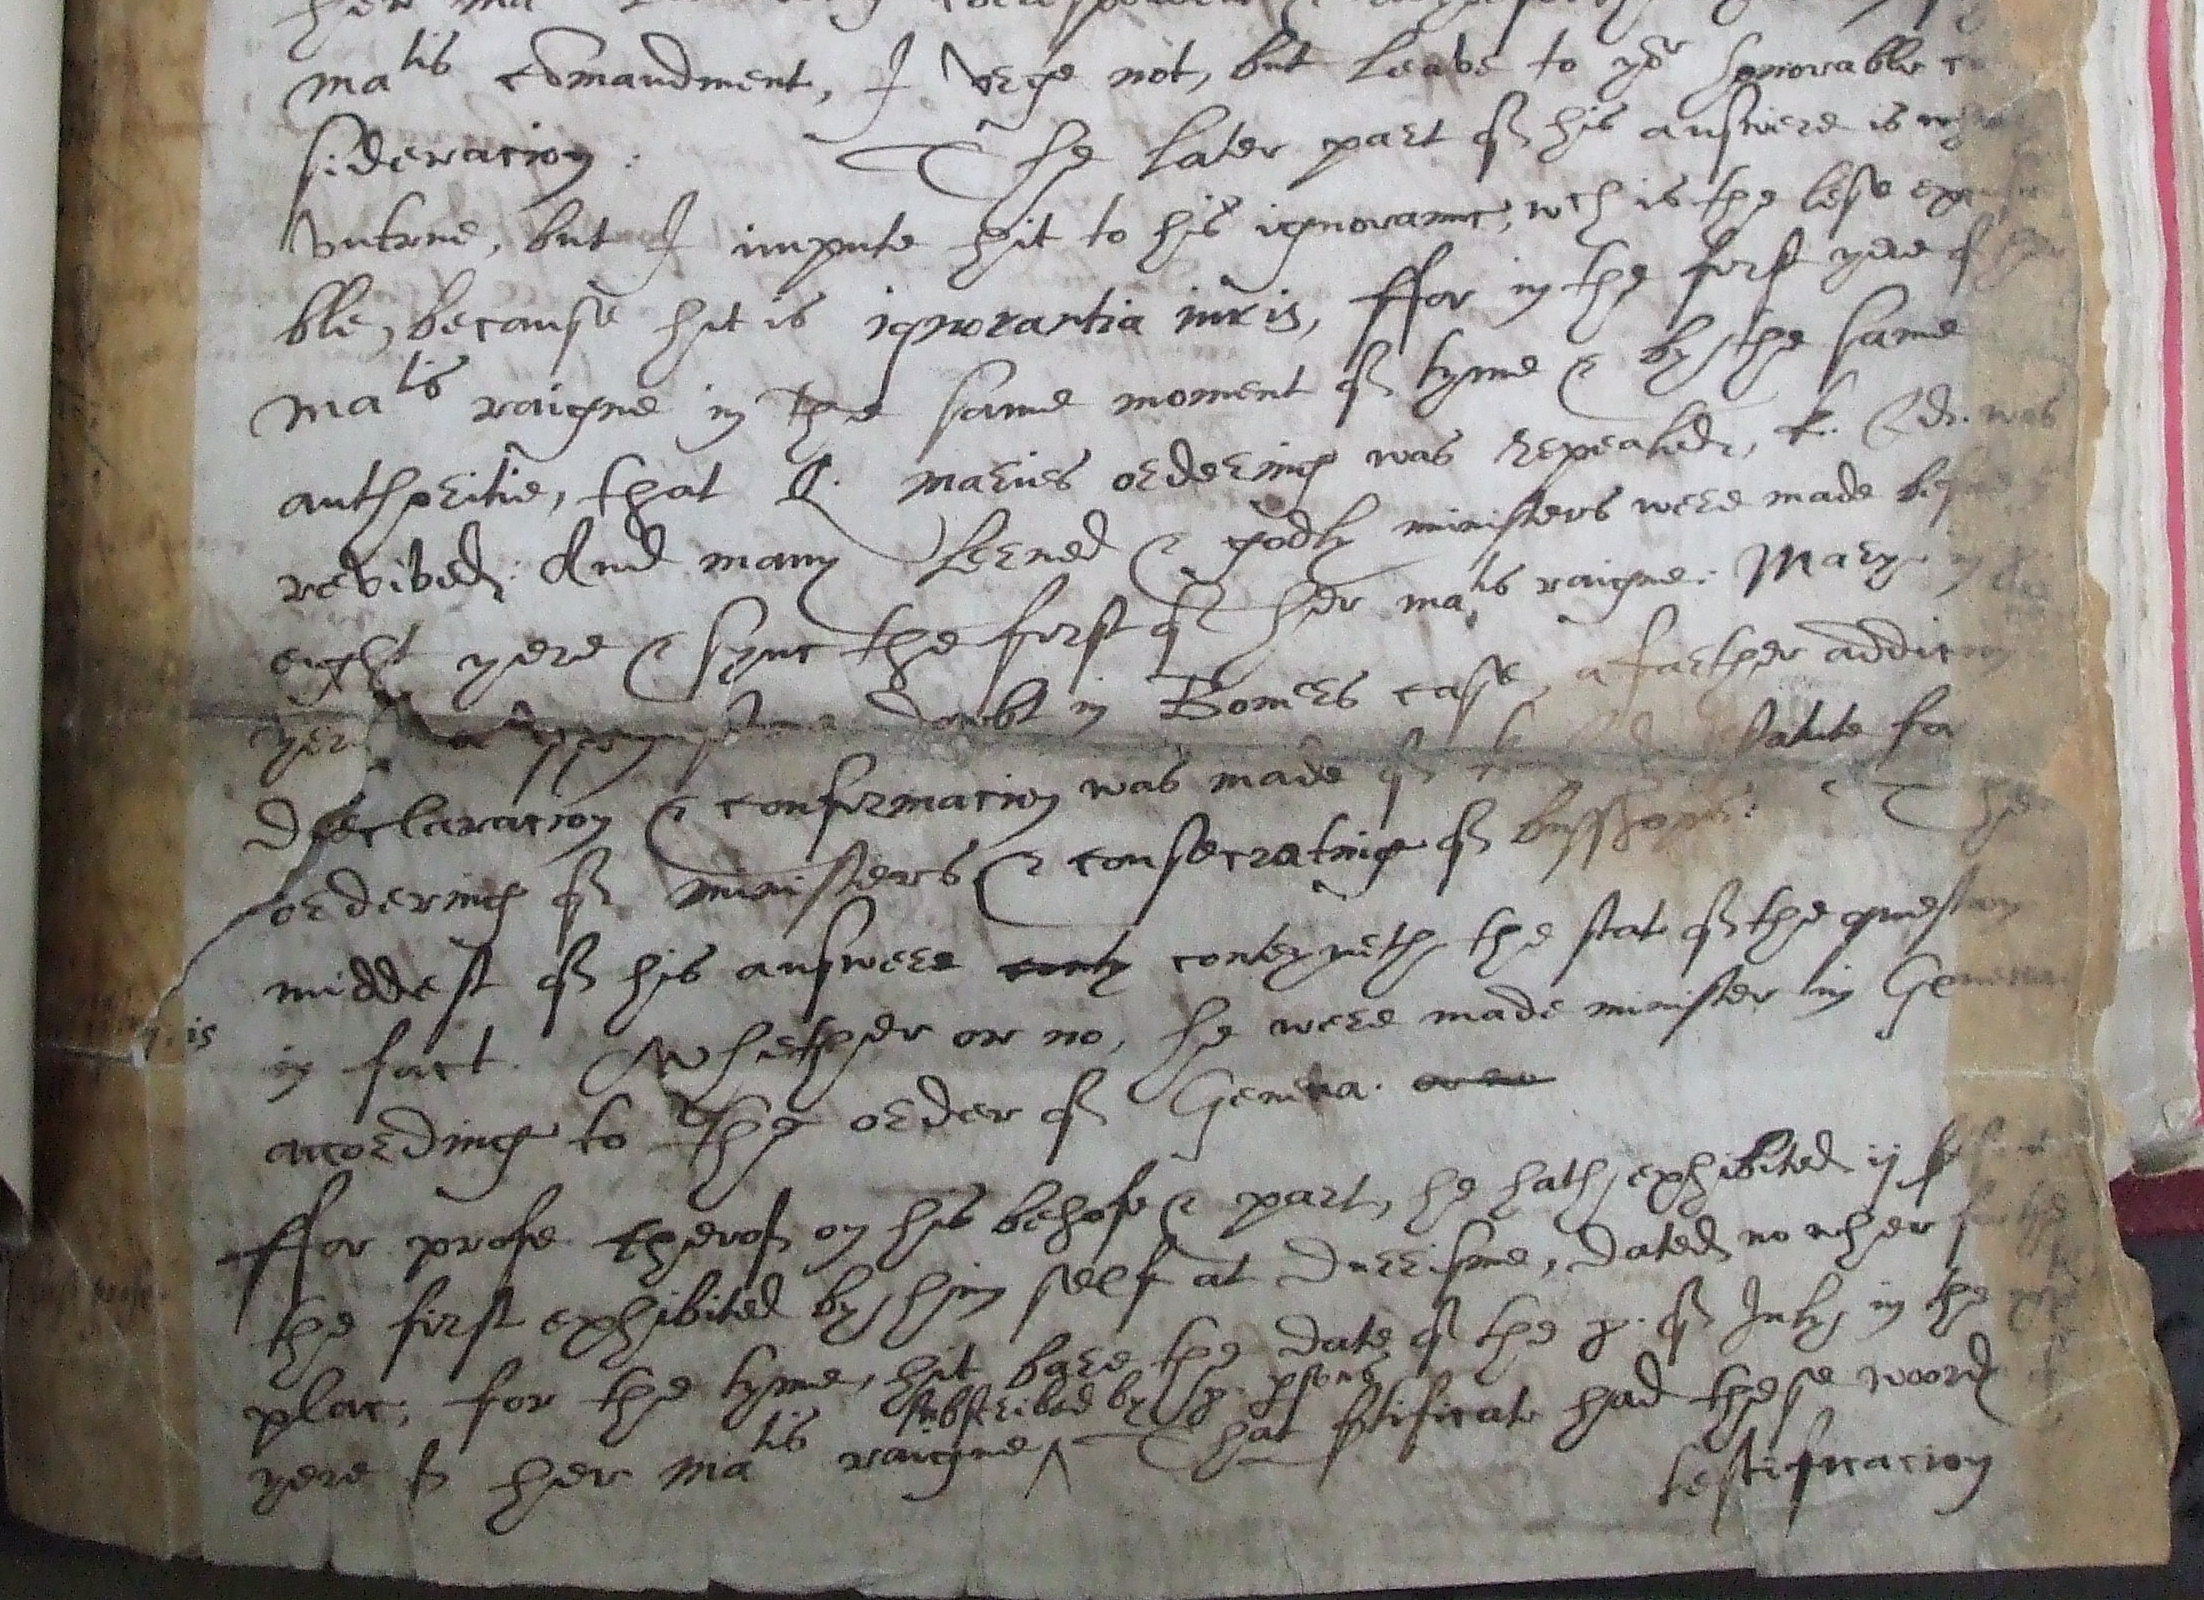 her ma
matis comandment, I vrge not, but leave to yor honorable co
sideracion: The later part of his answere is
vntrue, but I impute hit to his ignorance, wch is the lesse
ble, because hit is ignorantia iuris, ffor in the first yere of her
matis raigne in the same moment of tyme & by the same
authoritie, that Q. Maries ordering was repealed, k. Ed. was
revived. And many lerned & godly ministers were made
eight yere & sync the first of her matis raigne. Mary in
yere doubt in Boners case, a farther addicion
declaracion & confirmacion was made of statute for
ordering of ministers & consecrating of bysshops: The
middest of his answere only conteyneth the stat of the question
in fact. Whether or no, he were made minister in Geneva
according to the order of Geneva. or no
ffor profe therof on his behofe & part, he hath exhibited ij
the first exhibited by him self at Duresme, dated no wher for the
plac, for the tyme, hit bare the date of the 8. of July in the
subscribed by 8. psons
yere of her matis raigne ^ That certificate had these words
testificacion
is